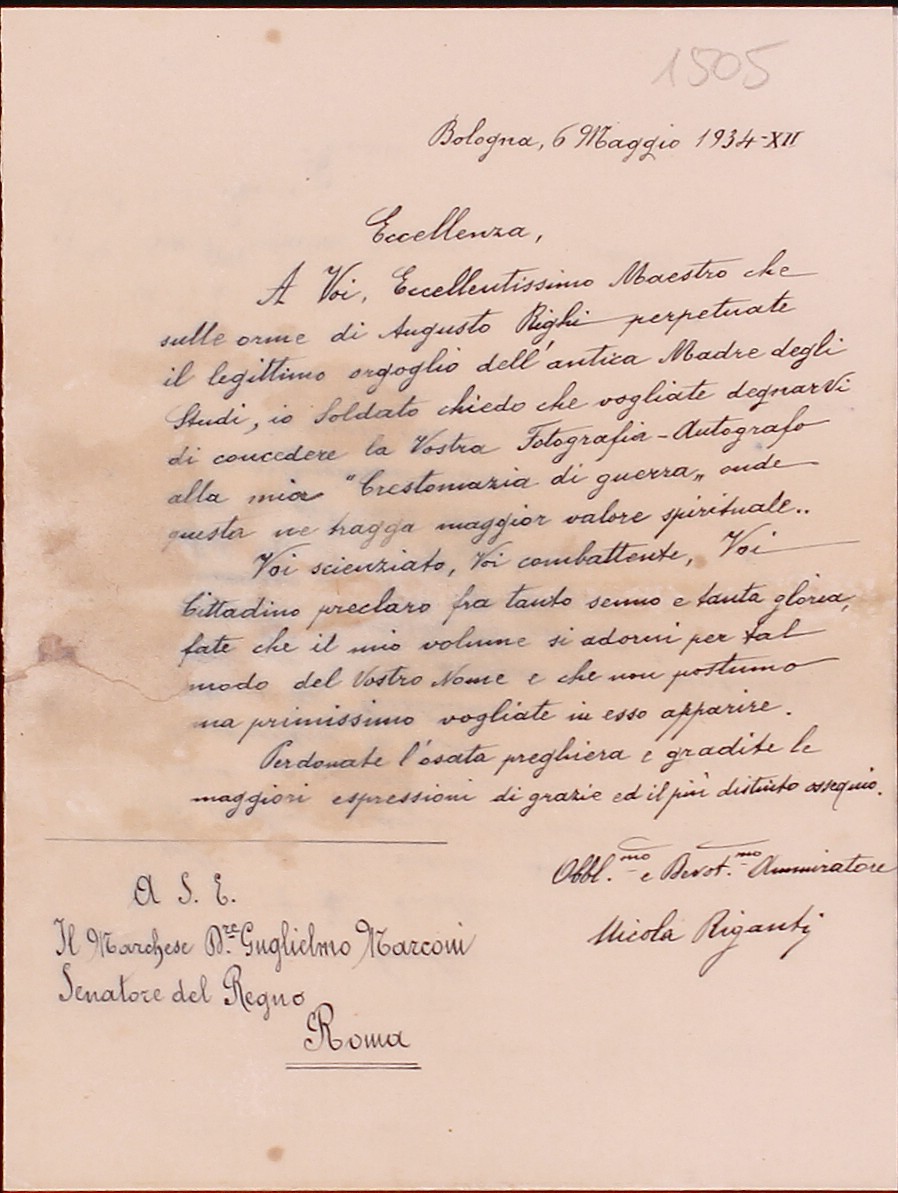 1505
Bologna, 6 Maggio 1934-XII
Eccellenza,
A Voi, Eccellentissimo Maestro che
sulle orme di Augusto Righi perpetuate
il legittimo orgoglio dell'antica Madre degli
Studi, io Soldato chiedo che vogliate degnarVi
di concedere la Vostra Fotografia-Autografo
alla mia "Crestomazia di guerra„ onde
questa ne tragga maggior valore spirituale..
Voi scienziato, Voi combattente, Voi
Cittadino preclaro fra tanto senno e tanta gloria,
fate che il mio volume si adorni per tal
modo del Vostro Nome e che non postumo
ma primissimo vogliate in esso apparire.
Perdonate l'osata preghiera e gradite le
maggiori espressioni di grazie ed il più distinto ossequio.
Obbl.mo e Devot.mo Ammiratore
Nicola Riganti
A S. E.
Il Marchese D.re Guglielmo Marconi
Senatore del Regno
Roma